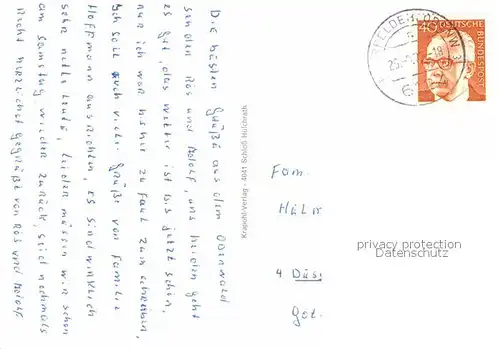 Die besten Grüße aus dem Odenwald
senden Rös und Adolf, uns beiden geht
es gut, das Wetter ist bis jetzt schön,
nur ich war bisher zu faul zum schreiben,
ich soll auch viele Grüße von Familie
Hoffmann ausrichten, es sind wirklich
sehr nette Leute, leider müssen wir schon
am Samstag wieder zurück, seid nochmals
Recht herzlichst gegrüßt von Rös und Adolf
Krapohl-Verlag - 4041 Schloß Hülchrath
40 DEUTSCHE
BUNDESPOST
Fam.
4 Düs
privacy protection
Datenschutz